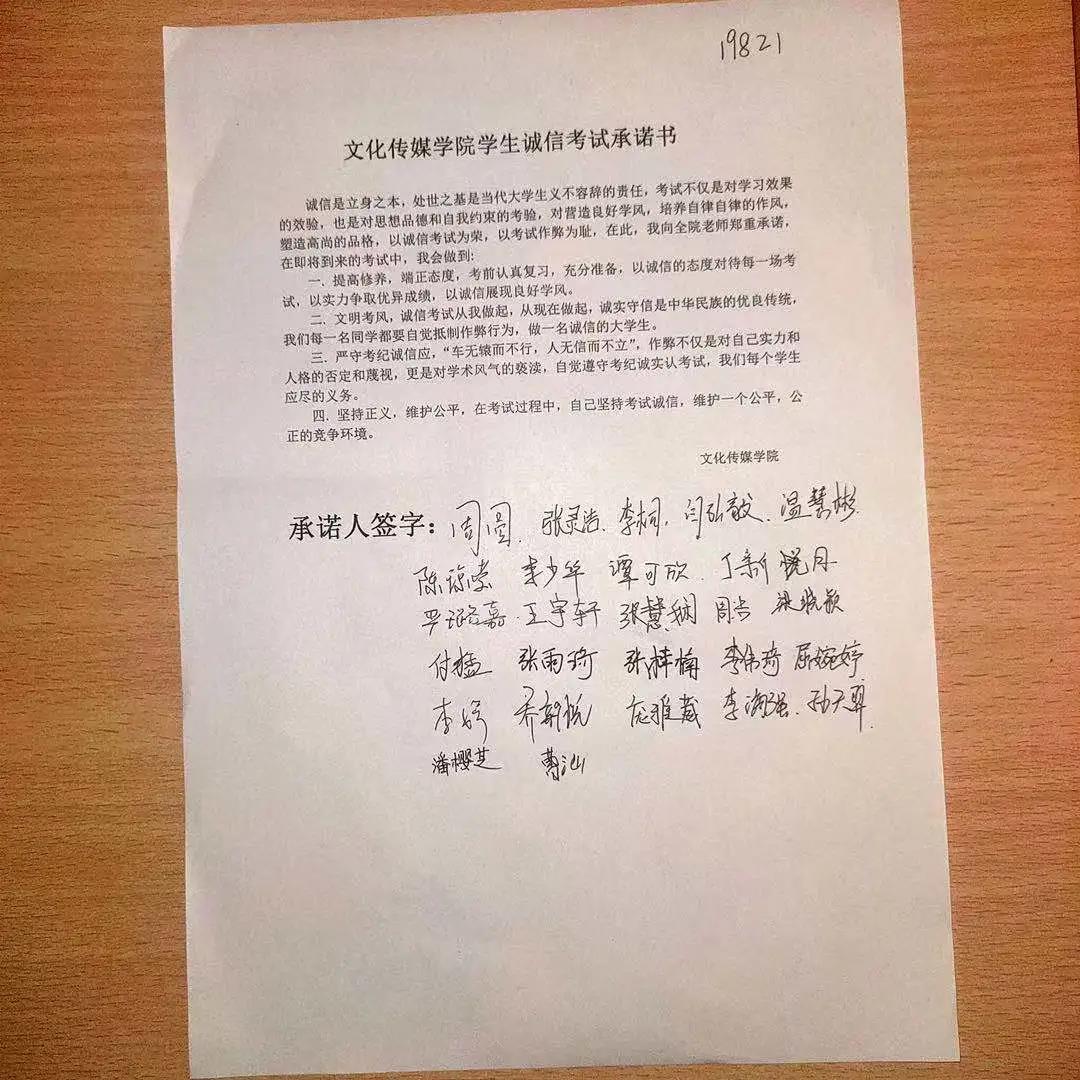 19821
文化传媒学院学生诚信考试承诺书
诚信是立身之本，处世之基是当代大学生义不容辞的责任，考试不仅是对学习效果
的效验，也是对思想品德和自我约束的考验，对营造良好学风，培养自律自律的作风，
塑造高尚的品格，以诚信考试为荣，以考试作弊为耻，在此，我向全院老师郑重承诺，
在即将到来的考试中，我会做到:
一．提高修养，端正态度，考前认真复习，充分准备，以诚信的态度对待每一场考
试，以实力争取优异成绩，以诚信展现良好学风。
二．文明考风，诚信考试从我做起，从现在做起，诚实守信是中华民族的优良传统，
我们每一名同学都要自觉抵制作弊行为，做一名诚信的大学生。
三．严守考纪诚信应，“车无辕而不行，人无信而不立”，作弊不仅是对自己实力和
人格的否定和蔑视，更是对学术风气的亵渎，自觉遵守考纪诚实认考试，我们每个学生
应尽的义务。
四．坚持正义，维护公平，在考试过程中，自己坚持考试诚信，维护一个公平，公
正的竞争环境。
文化传媒学院
承诺人签字：周圆．张灵浩．李桐．闫弘毅．温慧彬
陈琼崇 李少华 谭可欣．丁新悦月
罗璐嘉．王宇轩 张慧娴 周吉 梁晓颖
付猛 张雨琦 张梓楠 李伟琦 屈婉婷
李婷 乔朝悦 李海强．孙天羿
潘樱芝 曹汕